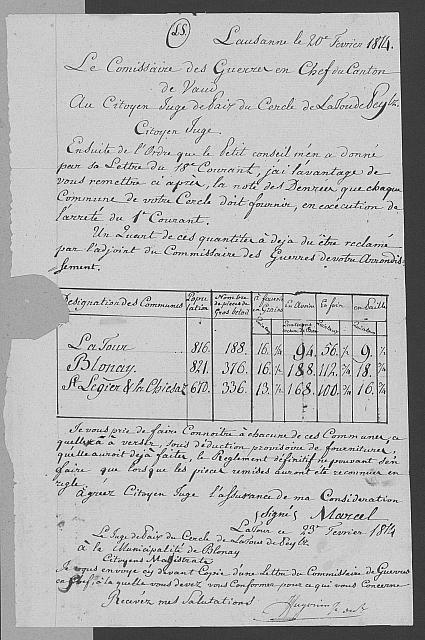 LS.
Lausanne le 20e Fevrier 1814.
Le Comissaire des Guerres en Chef du Canton
de Vaud
Au Citoyen Juge de Paix du Cercle de La Tour de Peylz.
Citoyen Juge.
Ensuite de l'Ordre que le petit conseil m'en a donné
par sa Lettre du 18e Courant, j'ai l'avantage de
vous remettre ci après, la note des Denrées que chaque
Commune de votre Cercle doit fournir, en execution de
l'arreté du 1er Courant.
Un Quart de ces quantités a déja du être reclamé
par l'adjoint du Commissaire des Guerres de votre Arrondis-
sement.
Designation des Communes Population Nombre de pieces de Gros betail en Grains en Avoine en foin en Paille
La Tour 816. 188. 16. 94. 56. 9.
Blonay. 821. 376. 16. 188. 112. 18.
St Légier & la Chiesaz 670. 336. 13. 168. 100. 16.
Je vous prie de faire Connoitre à chacune de ces Communes, ce
quelle a à verser, sous déduction provisoire de fournitures
quelle auroit deja faites, le Reglement définitif ne pouvant s'en
faire que lorsque les pieces remises auront été reconnues en
regle.
agréez Citoyen Juge l'assurance de ma Consideration
signé Marcel
La Tour ce 23e Fevrier 1814
Le Juge de Paix du Cercle de La Tour de Peylz
à la Municipalité de Blonay
Citoyens Magistrats
Je vous envoye cy devant Copie d'une Lettre du Commissaire de Guerres
en Chef, à la quelle vous devez vous Conformer pour ce qui vous Concerne
Recevez mes Salutations